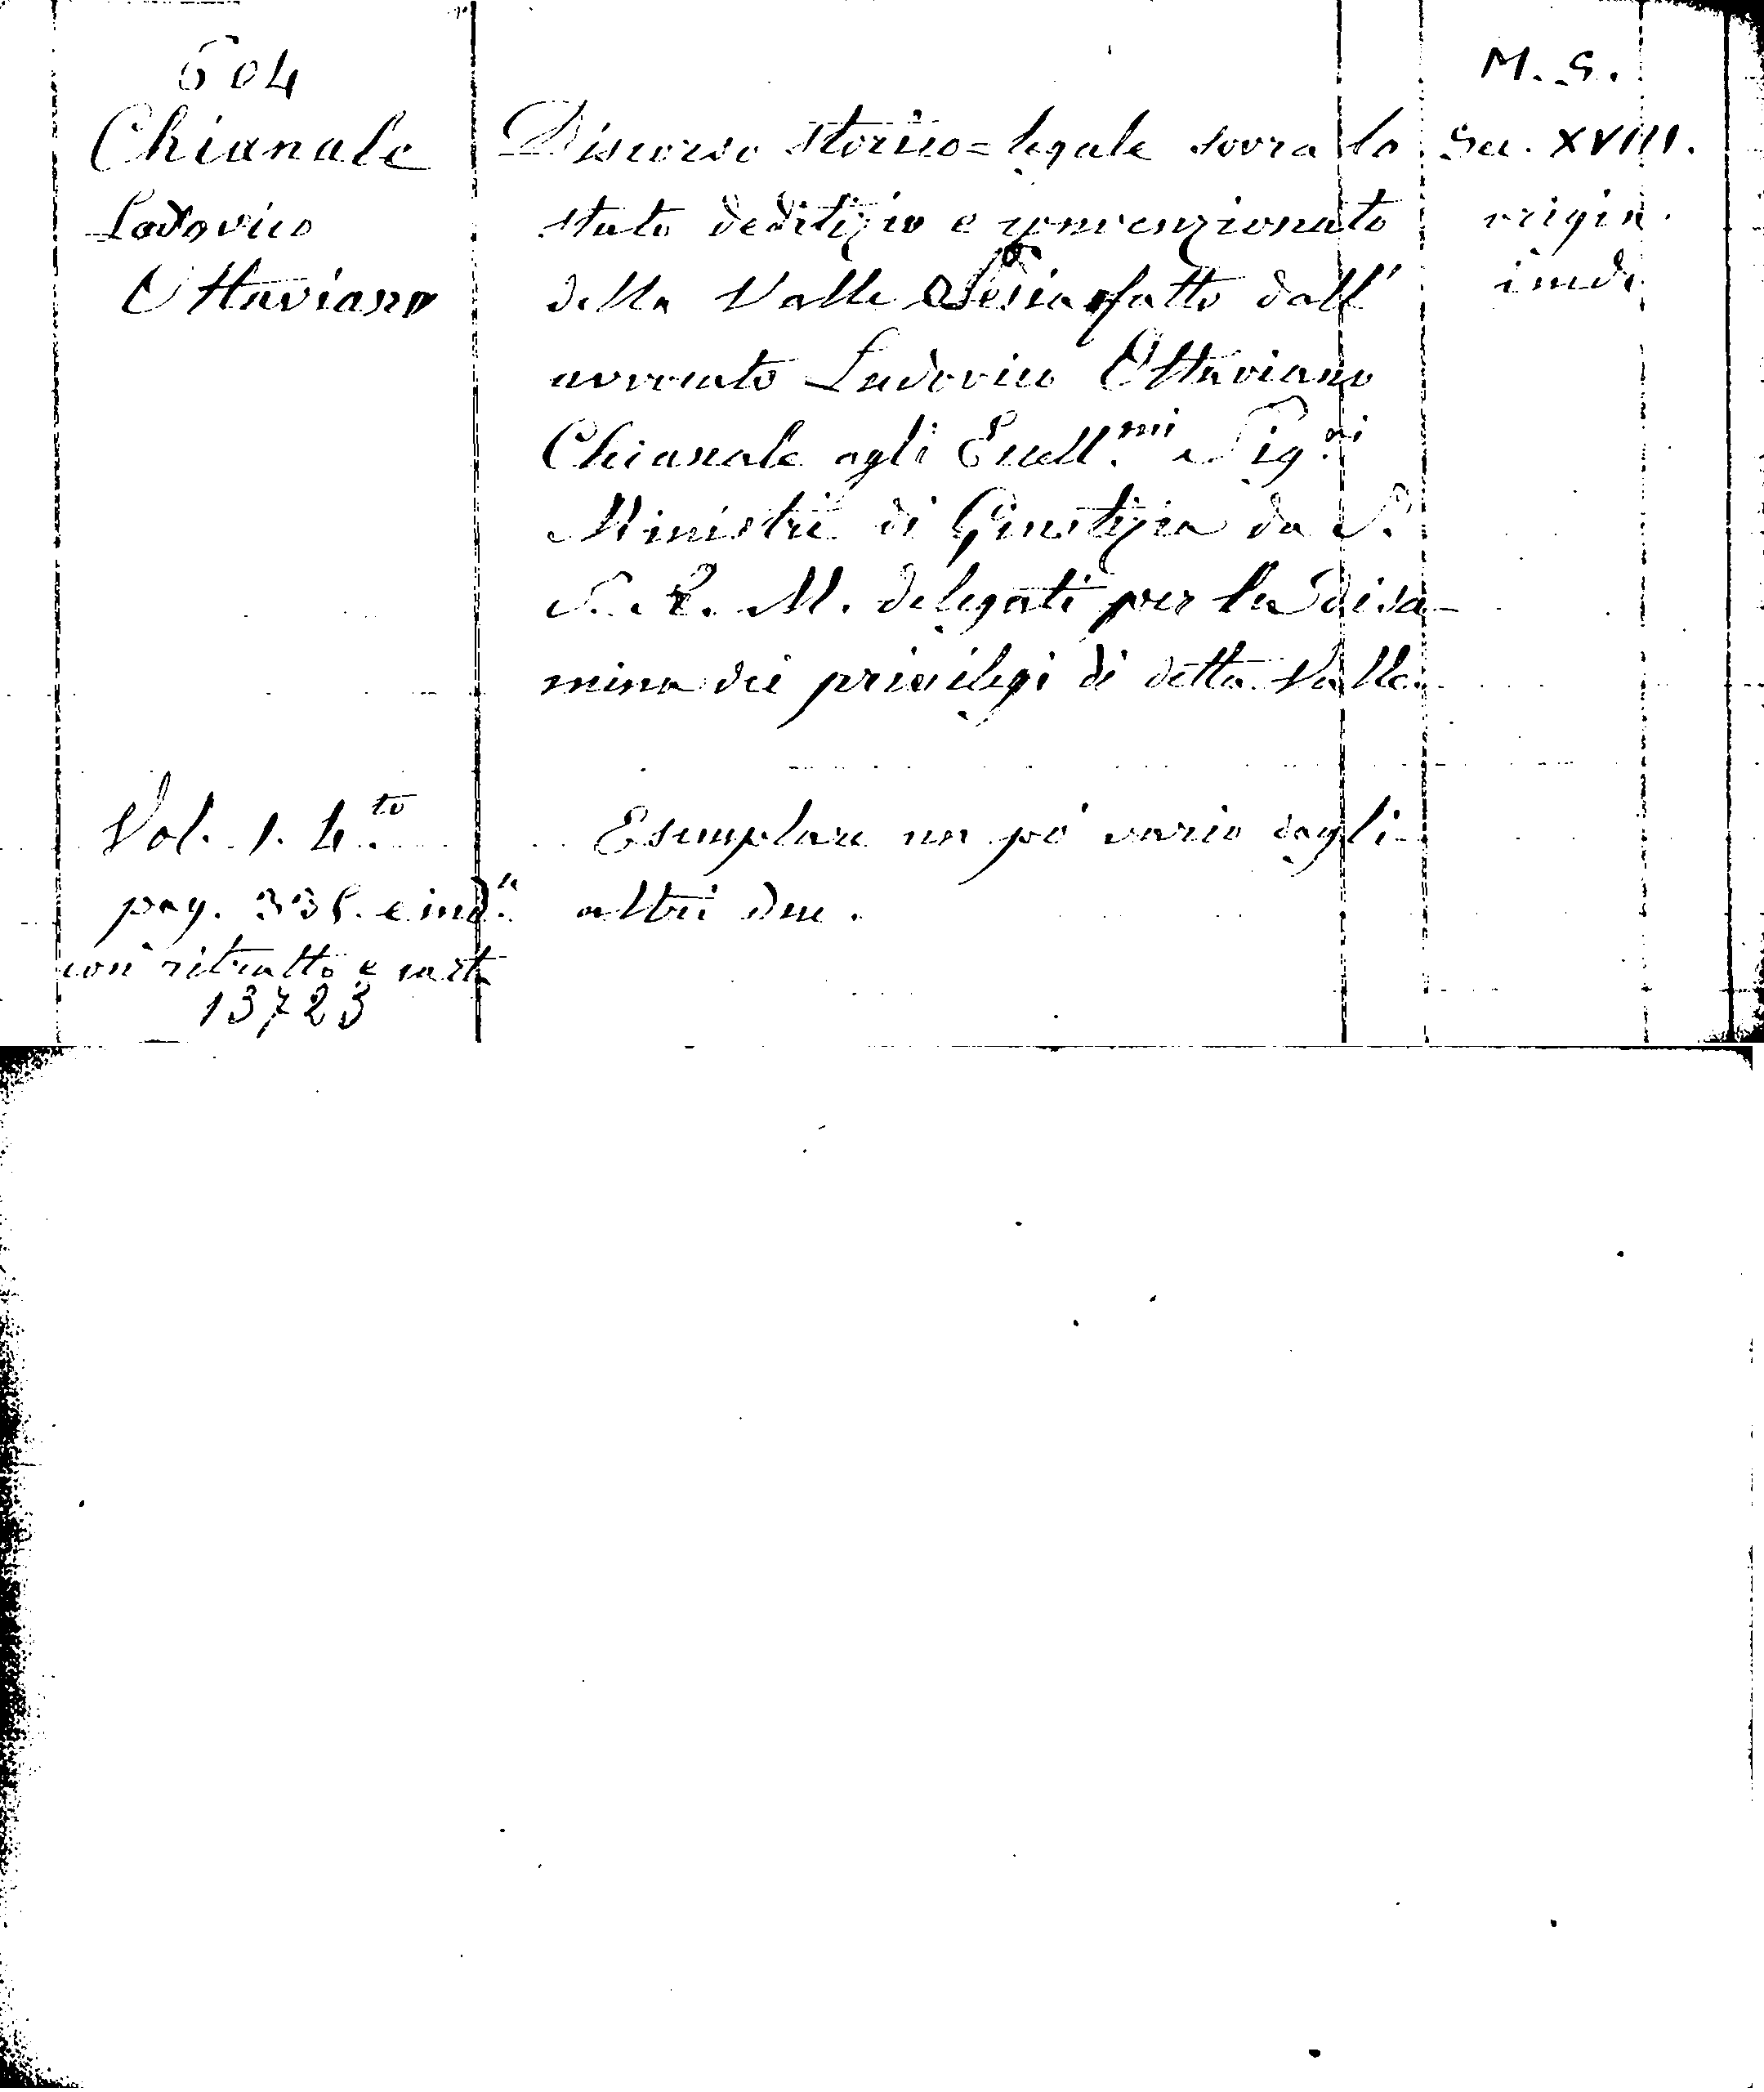 604
Chianale
Lodovico
Ottaviano
Vol. 1. 4.to
pag. 338. e ind.e
con ritratto e carta
13723
Discorso storico=legale sovra lo
stato deditizio e convenzionato
della Valle Sesia fatto dall'
avvocato Ludovico Ottaviano
Chianale agli Eccell.mi Sig.ri
Ministri di Giustizia da S.
S. R. M. delegati per la disa-
mina dei privilegi di detta Valle.
Esemplare un po' vario dagli
altri due.
M. S.
Sec. XVIII.
origin.
ined.